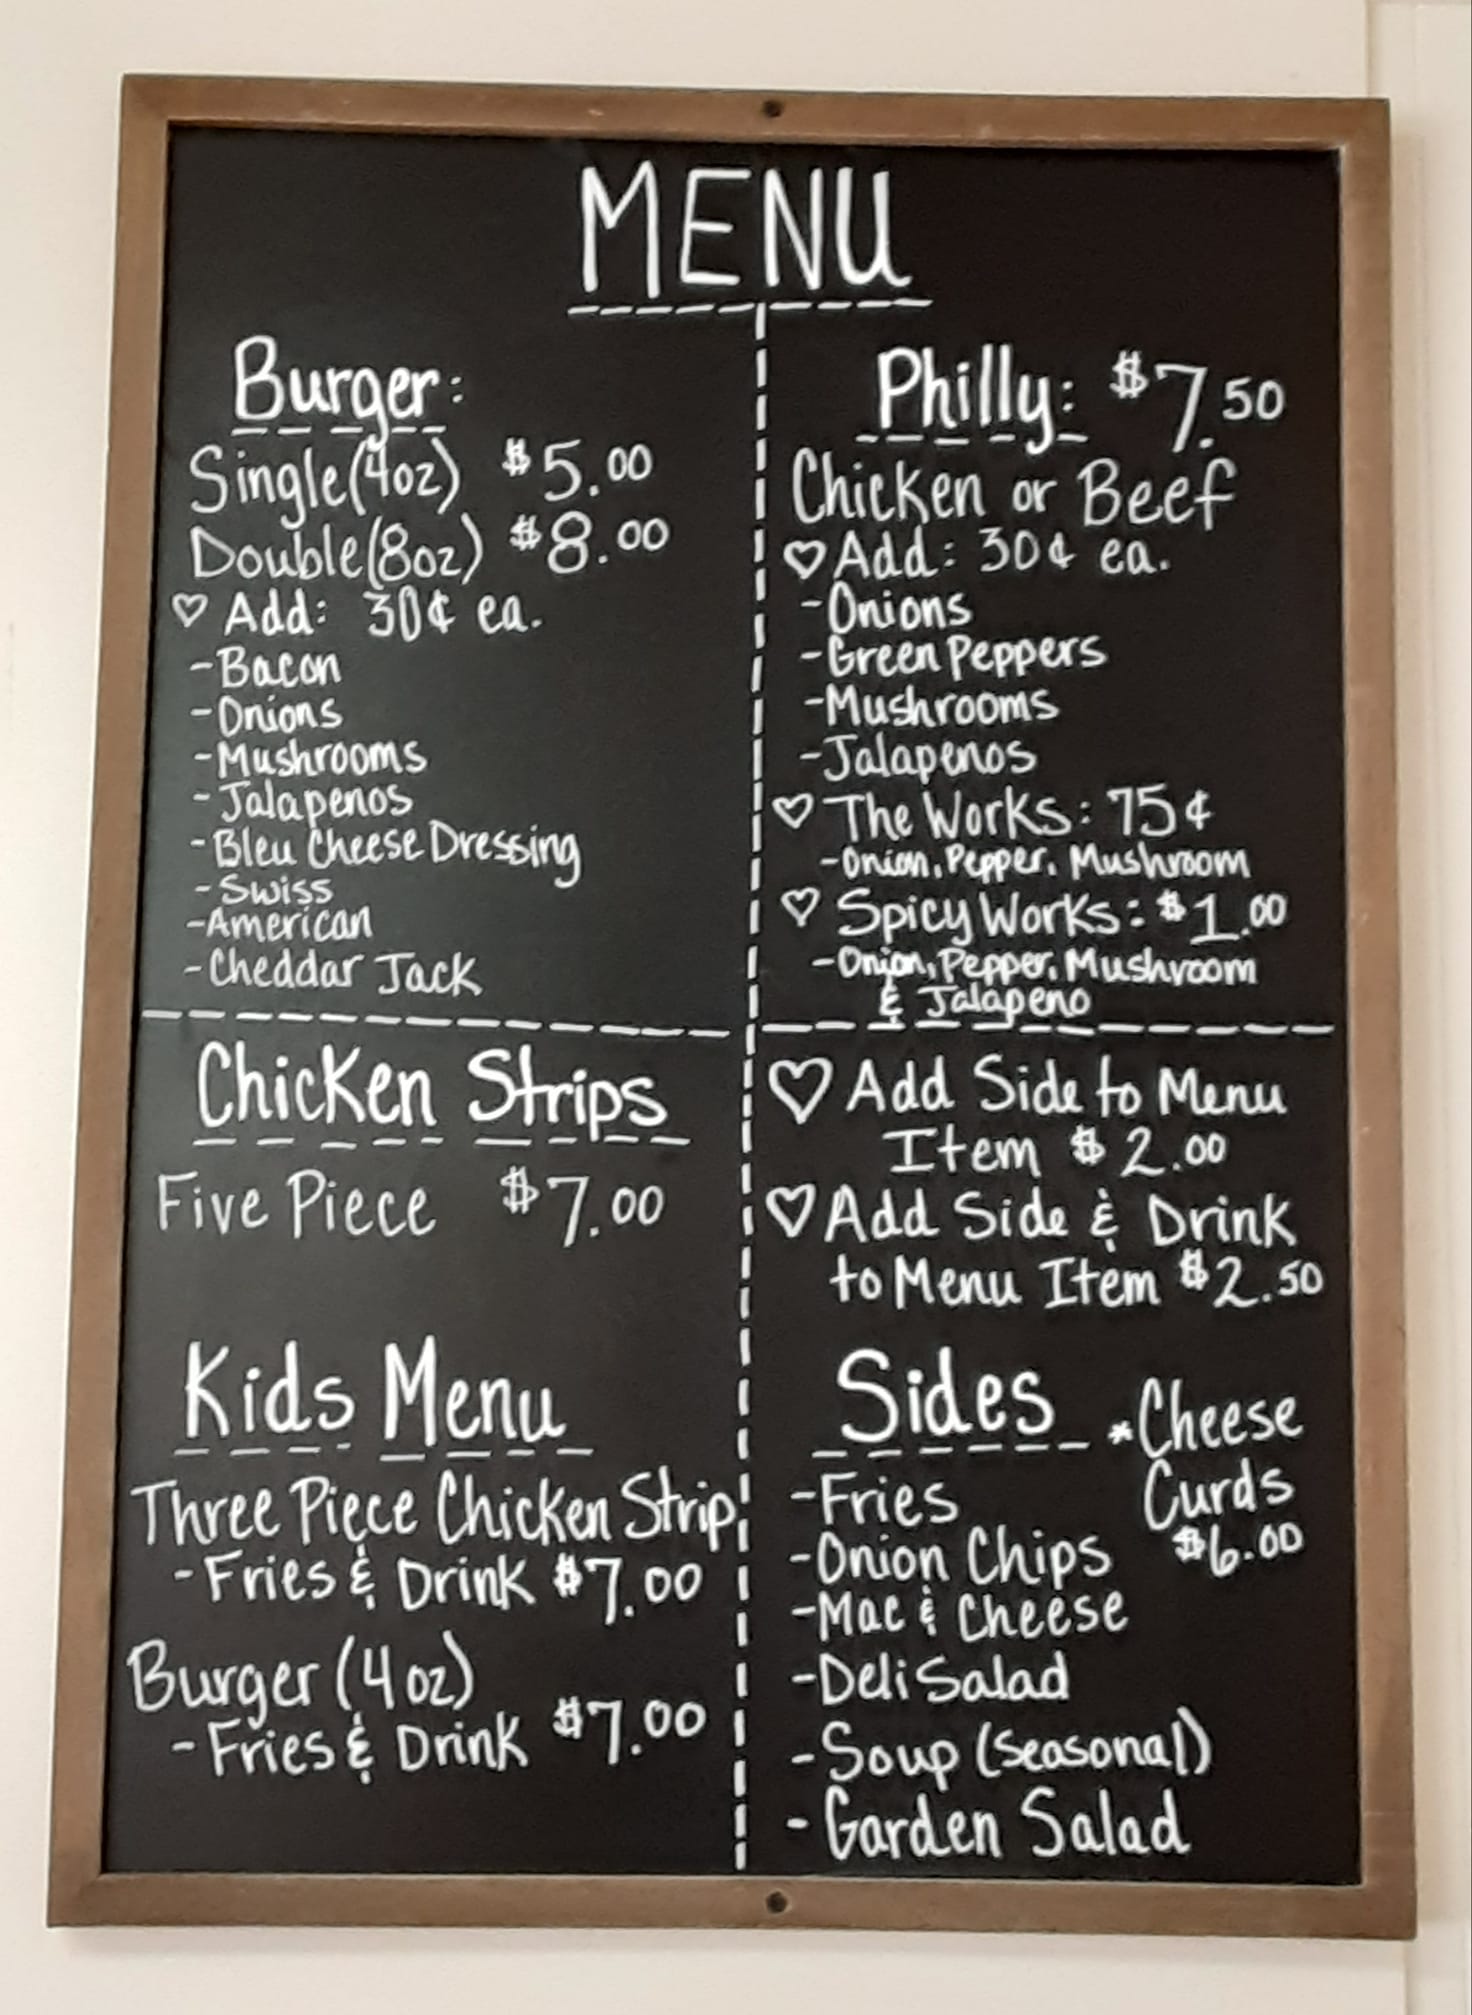 MENU
Burger:
Single(4oz) $5.00
Double(8oz) $8.00
♡ Add: 30¢ ea.
-Bacon
-Onions
-Mushrooms
-Jalapenos
-Bleu Cheese Dressing
-Swiss
-American
-Cheddar Jack
Philly: $7.50
Chicken or Beef
♡ Add: 30¢ ea.
-Onions
-Green Peppers
-Mushrooms
-Jalapenos
♡ The Works: 75¢
-Onion, Pepper, Mushroom
♡ Spicy Works: $1.00
-Onion, Pepper, Mushroom
& Jalapeno
Chicken Strips
Five Piece $7.00
♡ Add Side to Menu
Item $2.00
♡ Add Side & Drink
to Menu Item $2.50
Kids Menu
Three Piece Chicken Strip
-Fries & Drink $7.00
Burger (4oz)
-Fries & Drink $7.00
Sides
-Fries
-Onion Chips
-Mac & Cheese
-Deli Salad
-Soup (seasonal)
-Garden Salad
*Cheese
Curds
$6.00